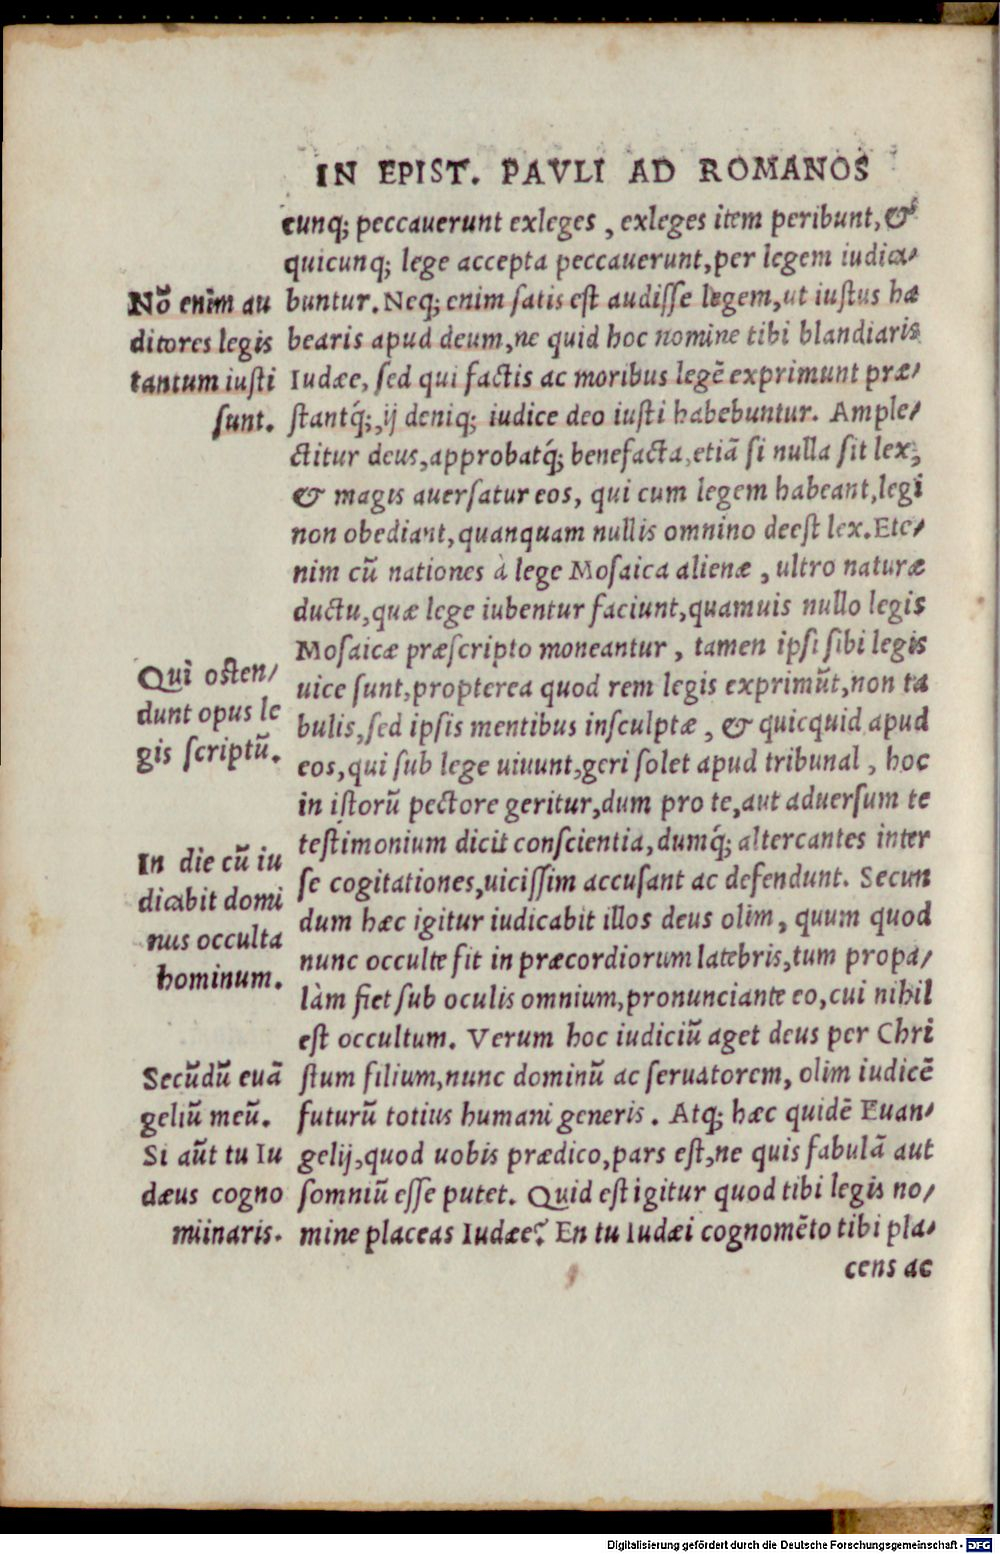 IN EPIST. PAVLI AD ROMANOS
cunq; peccauerunt exleges, exleges item peribunt, &
quicunq; lege accepta peccauerunt, per legem iudica-
buntur. Neq; enim satis est audisse legem, ut iustus ha
bearis apud deum, ne quid hoc nomine tibi blandiaris
Iudæe, sed qui factis ac moribus legē exprimunt præ-
stantq́;, ij deniq; iudice deo iusti habebuntur. Ample-
ctitur deus, approbatq́; benefacta, etiā si nulla sit lex,
& magis auersatur eos, qui cum legem habeant, legi
non obediant, quanquam nullis omnino deest lex. Ete-
nim cū nationes à lege Mosaica alienæ, ultro naturæ
ductu, quæ lege iubentur faciunt, quamuis nullo legis
Mosaicæ præscripto moneantur, tamen ipsi sibi legis
uice sunt, propterea quod rem legis exprimūt, non ta
bulis, sed ipsis mentibus insculptæ, & quicquid apud
eos, qui sub lege uiuunt, geri solet apud tribunal, hoc
in istorū pectore geritur, dum pro te, aut aduersum te
testimonium dicit conscientia, dumq́; altercantes inter
se cogitationes, uicissim accusant ac defendunt. Secun
dum hæc igitur iudicabit illos deus olim, quum quod
nunc occulte fit in præcordiorum latebris, tum propa-
làm fiet sub oculis omnium, pronunciante eo, cui nihil
est occultum. Verum hoc iudiciū aget deus per Chri
stum filium, nunc dominū ac seruatorem, olim iudicē
futurū totius humani generis. Atq; hæc quidē Euan-
gelij, quod uobis prædico, pars est, ne quis fabulā aut
somniū esse putet. Quid est igitur quod tibi legis no-
mine placeas Iudæe? En tu Iudæi cognomēto tibi pla-
cens ac
Nō enim au
ditores legis
tantum iusti
sunt.
Qui osten-
dunt opus le
gis scriptū.
In die cū iu
dicabit domi
nus occulta
hominum.
Secūdū euā
geliū meū.
Si aūt tu Iu
dæus cogno
miinaris.
Digitalisierung gefördert durch die Deutsche Forschungsgemeinschaft - DFG